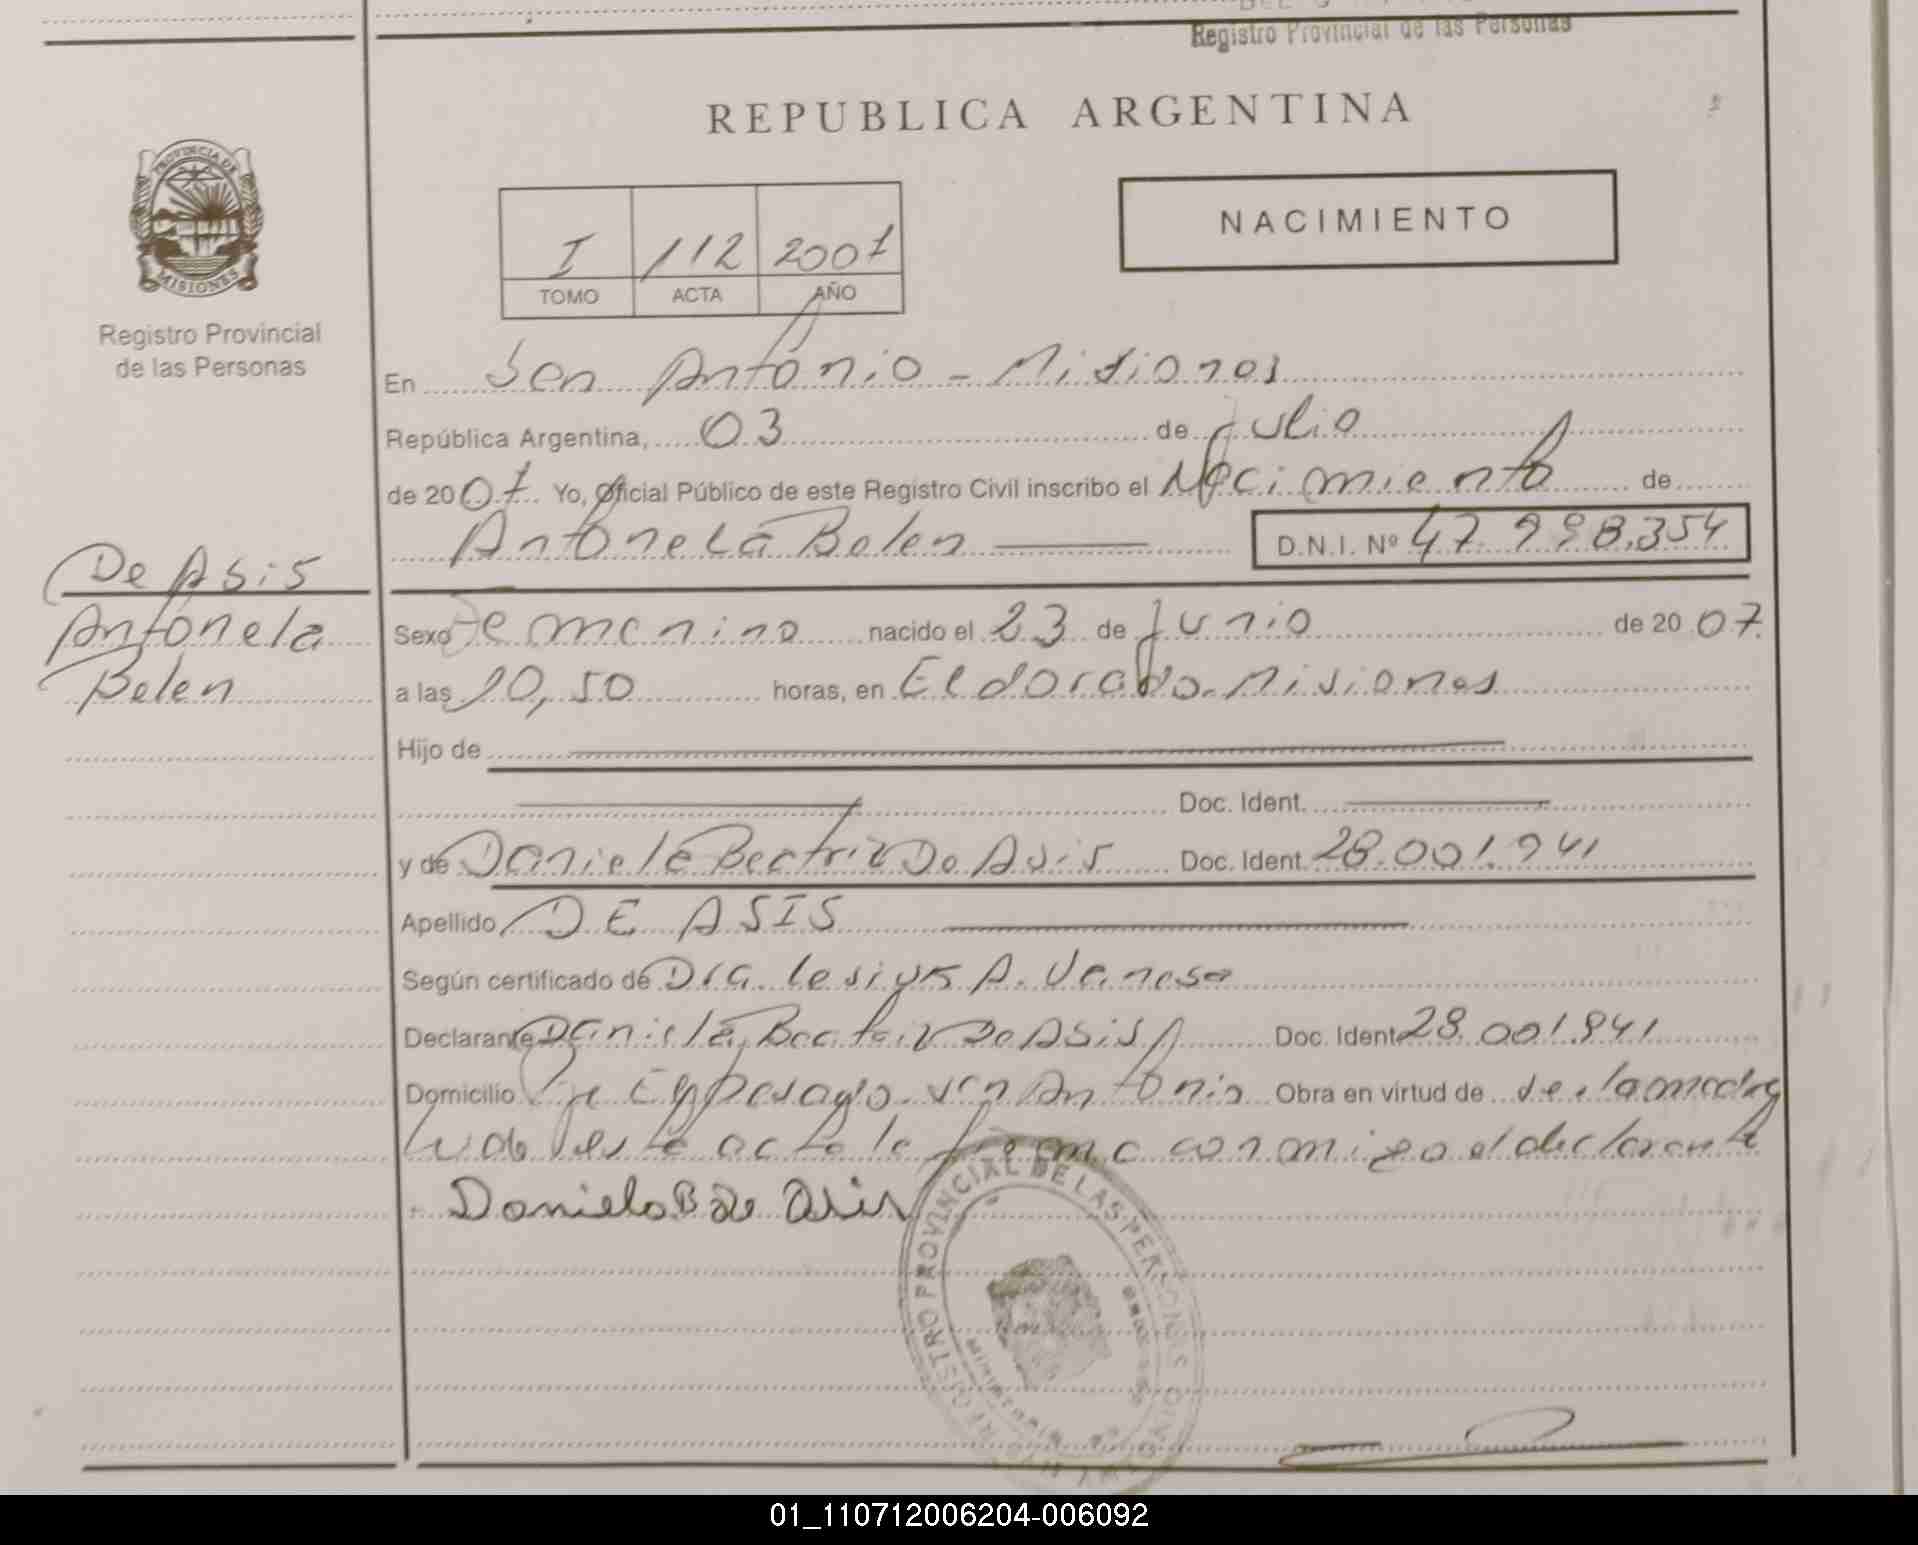 Registro Provincial de las Personas
REPUBLICA ARGENTINA
PROVINCIA DE
MISIONES
Registro Provincial
de las Personas
NACIMIENTO
I 112 2007
TOMO ACTA AÑO
En San Antonio - Misiones
República Argentina, 03 de Julio
de 2007 Yo, Oficial Público de este Registro Civil inscribo el Nacimiento de
Antonela Belen D.N.I. Nº 47.998.354
De Asis
Antonela
Belen
Sexo Femenino nacido el 23 de Junio de 2007
a las 10,50 horas, en Eldorado - Misiones
Hijo de
Doc. Ident.
y de Daniela Beatriz De Asis Doc. Ident. 28.001.941
Apellido DE ASIS
Según certificado de Dra. A. Vanesa
Declarante Daniela Beatriz De Asis Doc. Ident. 28.001.941
Domicilio San Antonio Obra en virtud de de la madre
este acta la firma conmigo el declarante
Daniela B de Asis
REGISTRO PROVINCIAL DE LAS PERSONAS
01_110712006204-006092